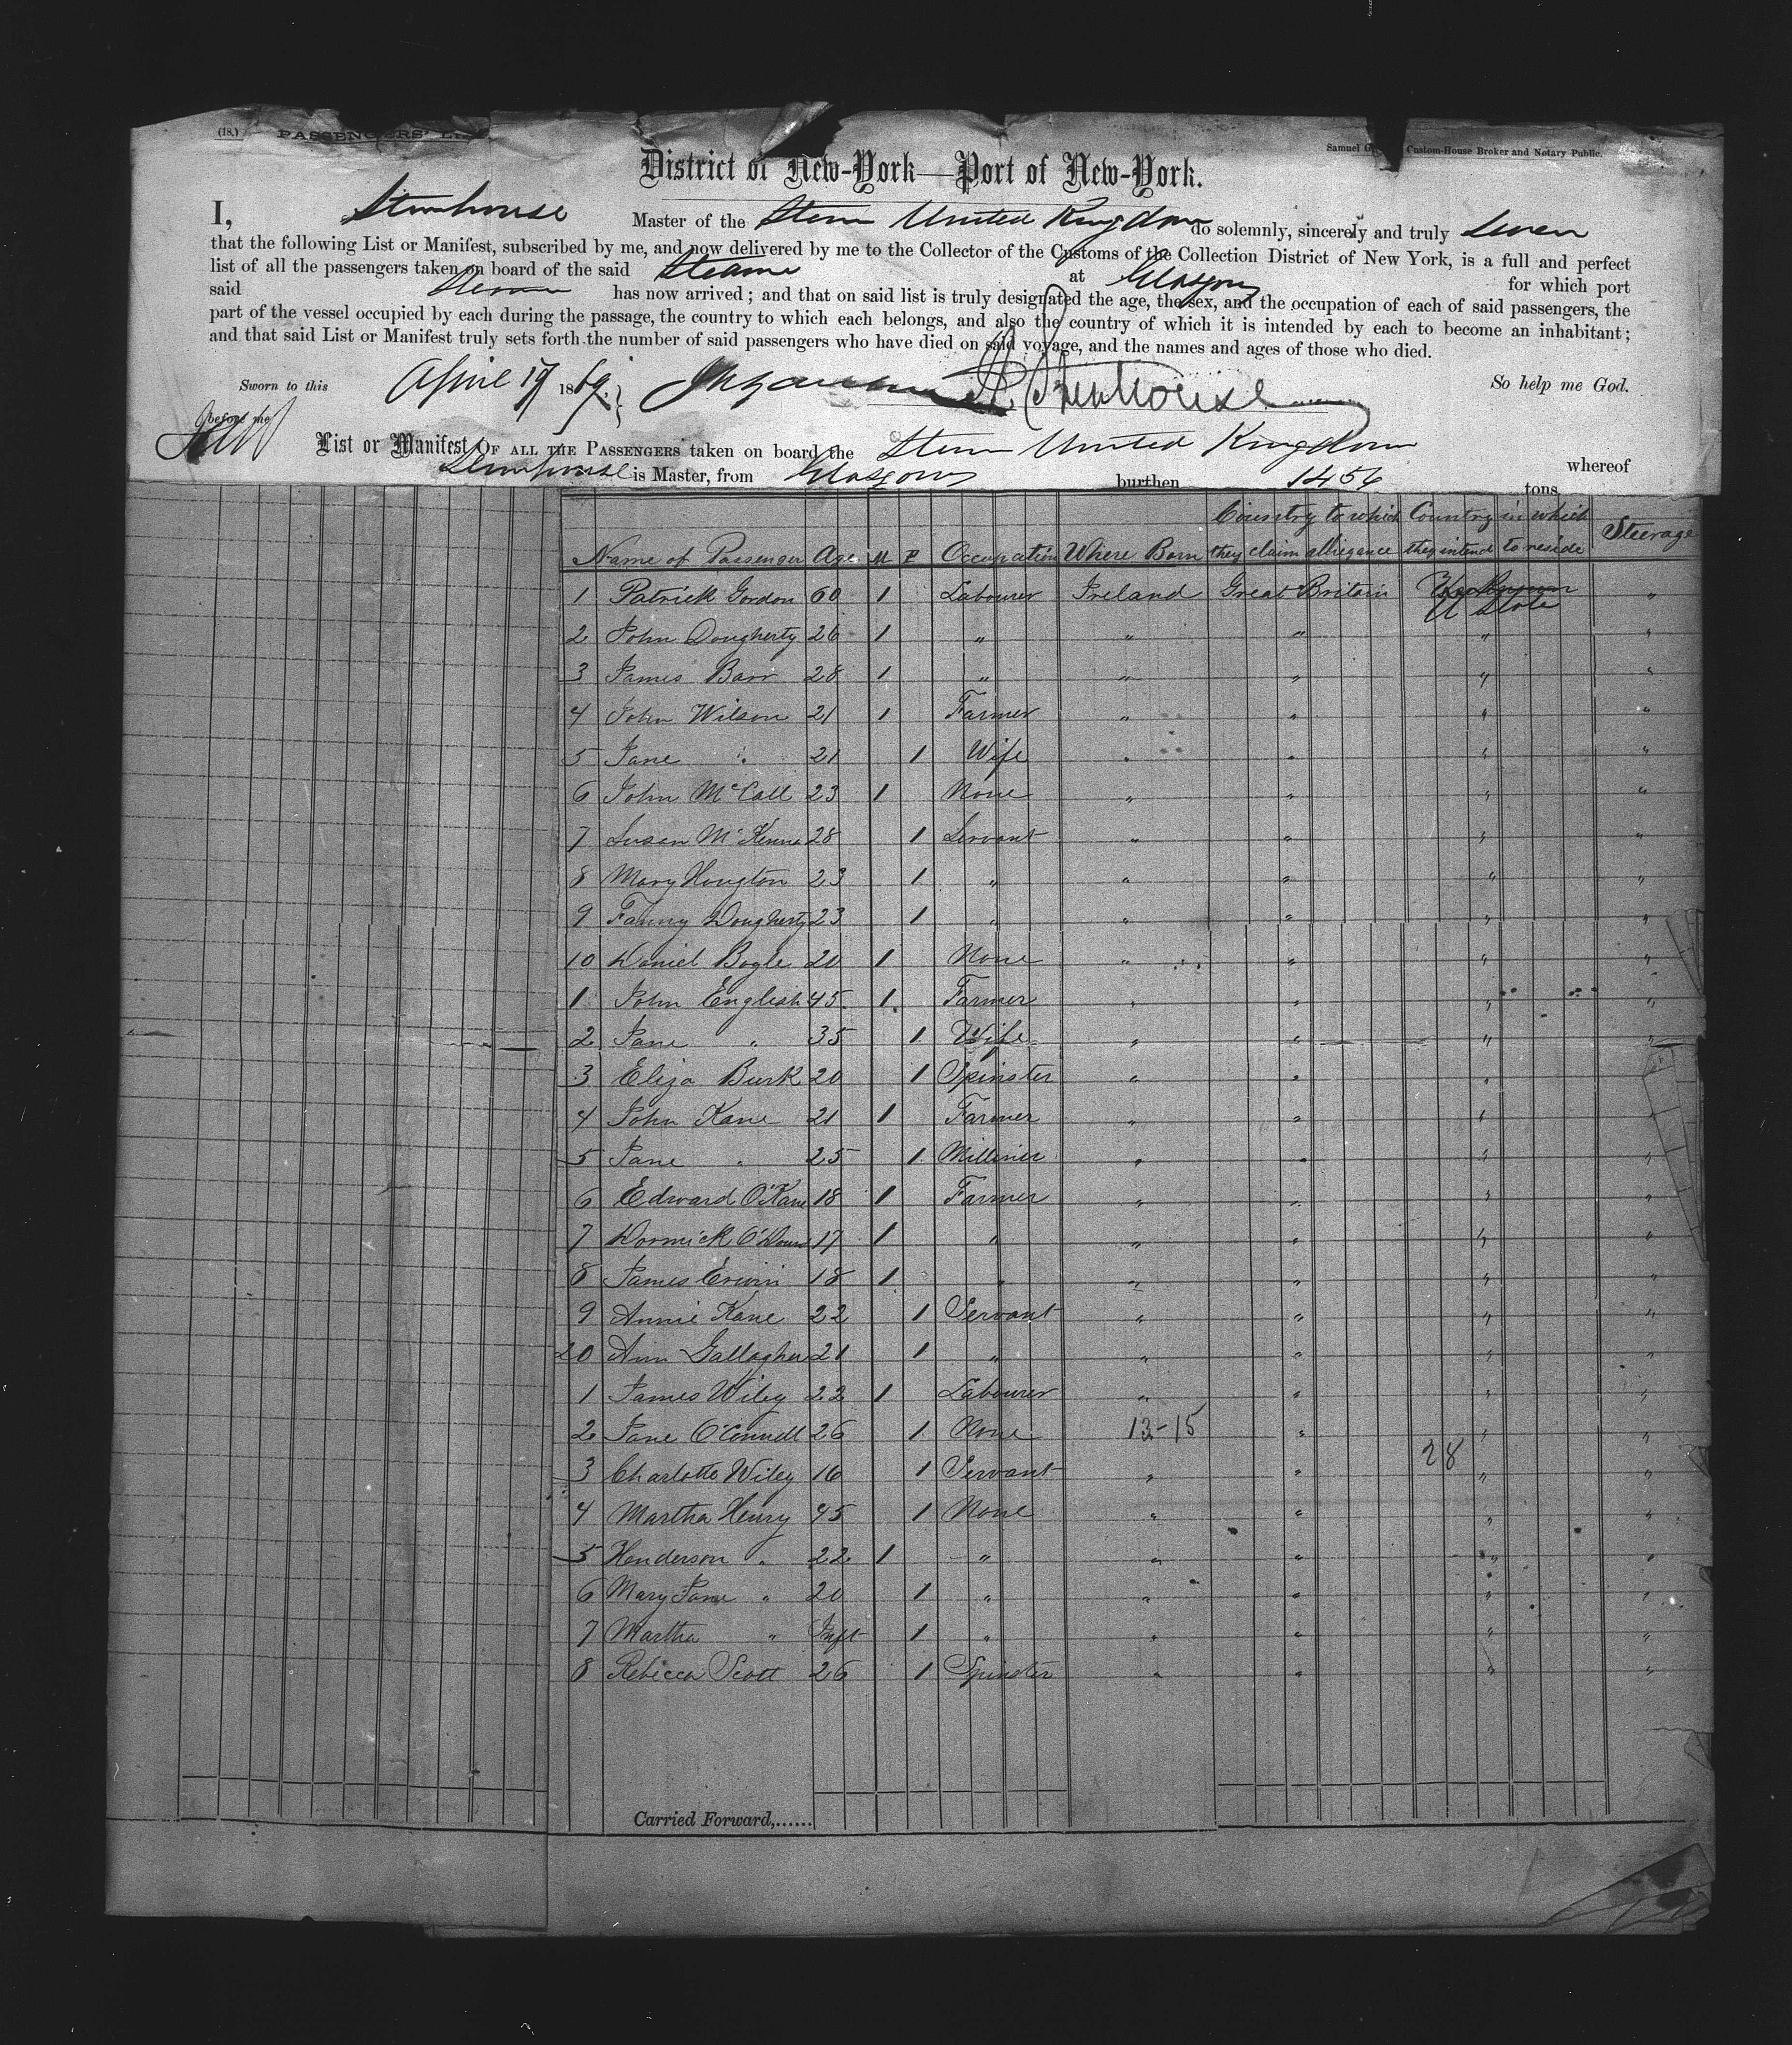 (18.) PASSENGERS' LIS
Samuel G Custom-House Broker and Notary Public.
District of New-York—Port of New-York.
I, Stenhouse Master of the Stem United Kingdom do solemnly, sincerely and truly swear
that the following List or Manifest, subscribed by me, and now delivered by me to the Collector of the Customs of the Collection District of New York, is a full and perfect
list of all the passengers taken on board of the said Steamer at Glasgow for which port
said Steamer has now arrived; and that on said list is truly designated the age, the sex, and the occupation of each of said passengers, the
part of the vessel occupied by each during the passage, the country to which each belongs, and also the country of which it is intended by each to become an inhabitant;
and that said List or Manifest truly sets forth the number of said passengers who have died on said voyage, and the names and ages of those who died.
Sworn to this April 17 1869. Stenhouse So help me God.
before me
List or Manifest OF ALL THE PASSENGERS taken on board the Stem United Kingdom whereof
Stenhouse is Master, from Glasgow burthen 1456 tons
Name of Passenger Age M F Occupation Where Born Country to which they claim alliegance Country in which they intend to reside Steerage
1 Patrick Gordon 60 1 Labourer Ireland Great Britain U State "
2 John Dougherty 26 1 " " " " "
3 James Barr 28 1 " " " " "
4 John Wilson 21 1 Farmer " " " "
5 Jane " 21 1 Wife " " " "
6 John McCall 23 1 None " " " "
7 Susan McKenna 28 1 Servant " " " "
8 Mary Hougton 23 1 " " " " "
9 Fanny Dougherty 23 1 " " " " "
10 Daniel Bogle 20 1 None " " " "
1 John English 45 1 Farmer " " " "
2 Jane " 35 1 Wife " " " "
3 Eliza Burk 20 1 Spinster " " " "
4 John Kane 21 1 Farmer " " " "
5 Jane " 25 1 Milliner " " " "
6 Edward O'Kane 18 1 Farmer " " " "
7 Dormick 17 1 " " " " "
8 James Erwin 18 1 " " " " "
9 Annie Kane 22 1 Servant " " " "
20 Ann Gallagher 21 1 " " " " "
1 James Wiley 22 1 Labourer " " " "
2 Jane O'Connell 26 1 None 13-15 " " "
3 Charlotte Wiley 16 1 Servant " " 28 " "
4 Martha Henry 45 1 None " " " "
5 Henderson " 22 1 " " " " "
6 Mary Jane " 20 1 " " " " "
7 Martha " Inft 1 " " " " "
8 Rebecca Scott 26 1 Spinster " " " "
Carried Forward,......